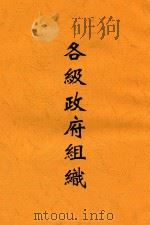 各級政府組織
mtoou.info mtoou.info